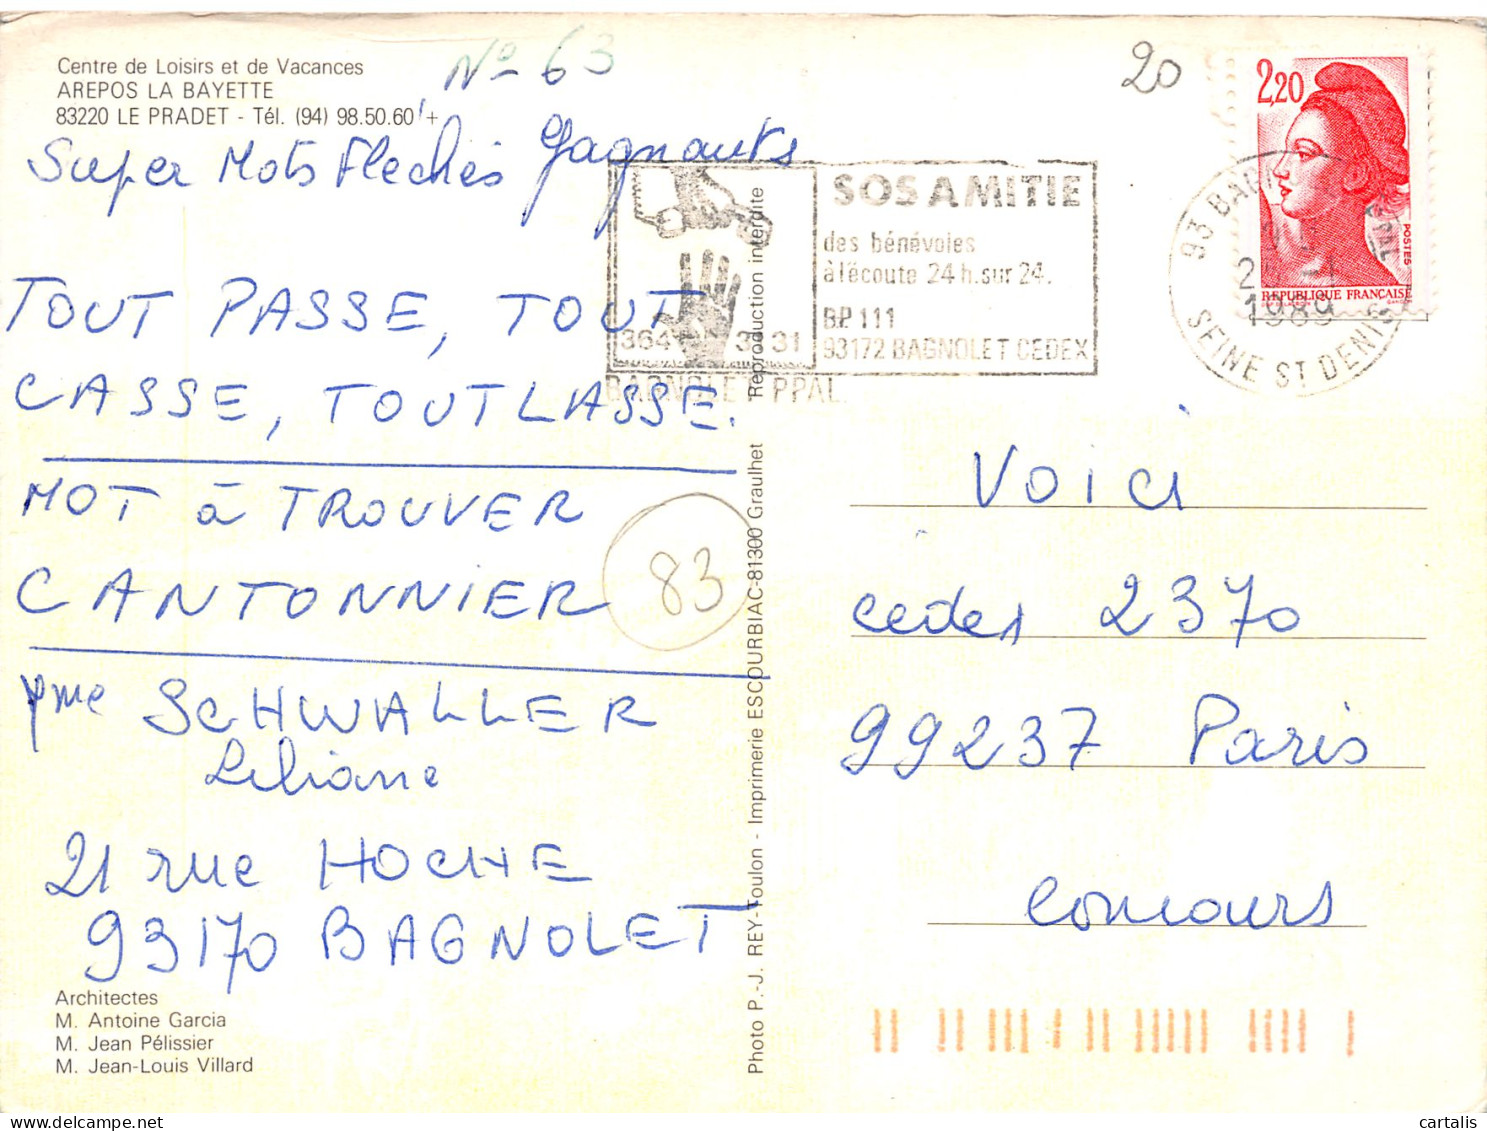 Centre de Loisirs et de Vacances
AREPOS LA BAYETTE
83220 LE PRADET - Tél. (94) 98.50.60 +
N° 63
Super Mots Flechés gagnants
TOUT PASSE, TOUT
CASSE, TOUT LASSE.
MOT à TROUVER
CANTONNIER
83
Mme SCHWALLER
Liliane
21 rue HOCHE
93170 BAGNOLET
Architectes
M. Antoine Garcia
M. Jean Pélissier
M. Jean-Louis Villard
Photo P.-J. REY-Toulon - Imprimerie ESCOURBIAC-81300 Graulhet Reproduction interdite
364 31 31
BAGNOLET PPAL
SOS AMITIE
des bénévoles
à l'écoute 24 h. sur 24.
B.P. 111
93172 BAGNOLET CEDEX
20
2,20
POSTES
REPUBLIQUE FRANÇAISE
93 BAGNOLET PPAL
1989
SEINE ST DENIS
Voici
cedex 2370
99237 Paris
Concours
cartalis